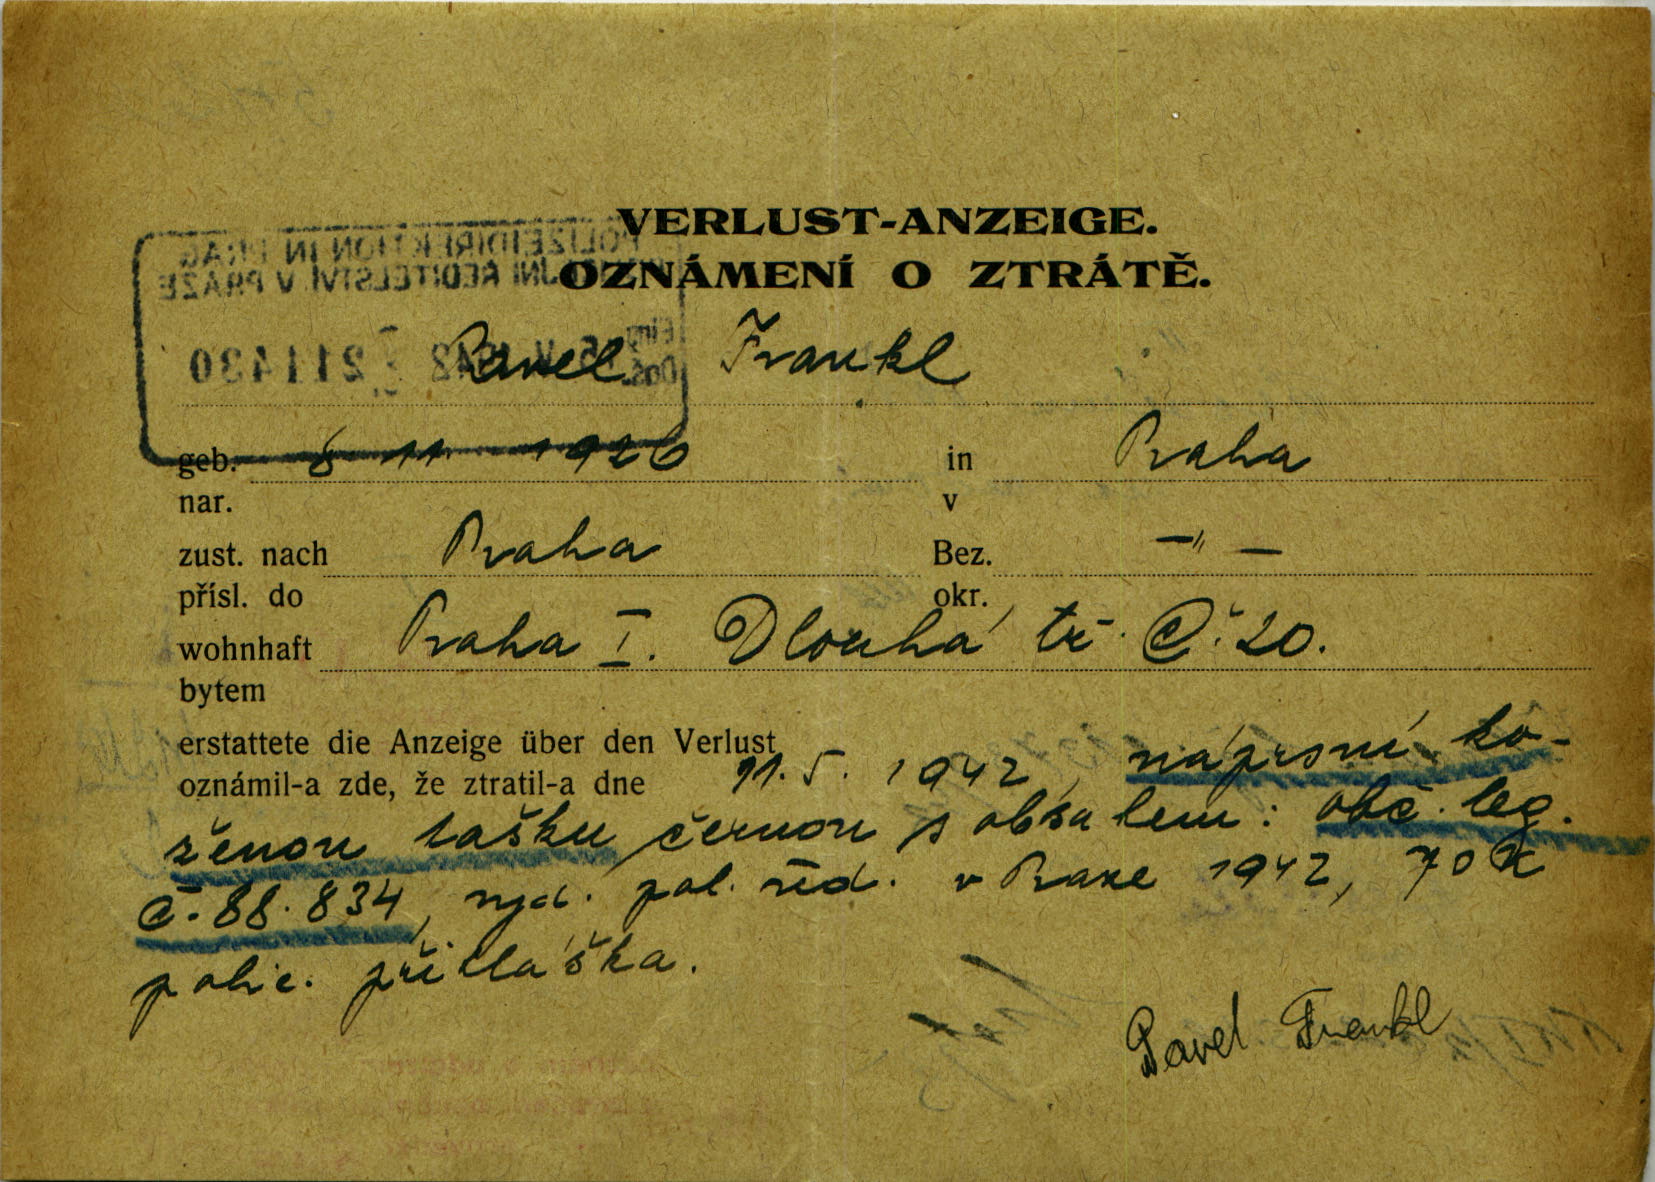 VERLUST-ANZEIGE.
OZNÁMENÍ O ZTRÁTĚ.
POLIZEIDIREKTION IN PRAG
ŘEDITELSTVÍ V PRAZE
Eing.
Doš. 1942 211430
Pavel Frankl
geb. 8 11 1926 in Praha
nar. v
zust. nach Praha Bez. —"—
přísl. do okr.
wohnhaft Praha I. Dlouhá tř. č. 20.
bytem
erstattete die Anzeige über den Verlust
oznámil-a zde, že ztratil-a dne 11. 5. 1942, náprsní ko-
ženou tašku černou s obsahem: obč. leg.
č. 88.834, vyd. pol. řed. v Praze 1942, 70 K
polic. přihláška.
Pavel Frankl